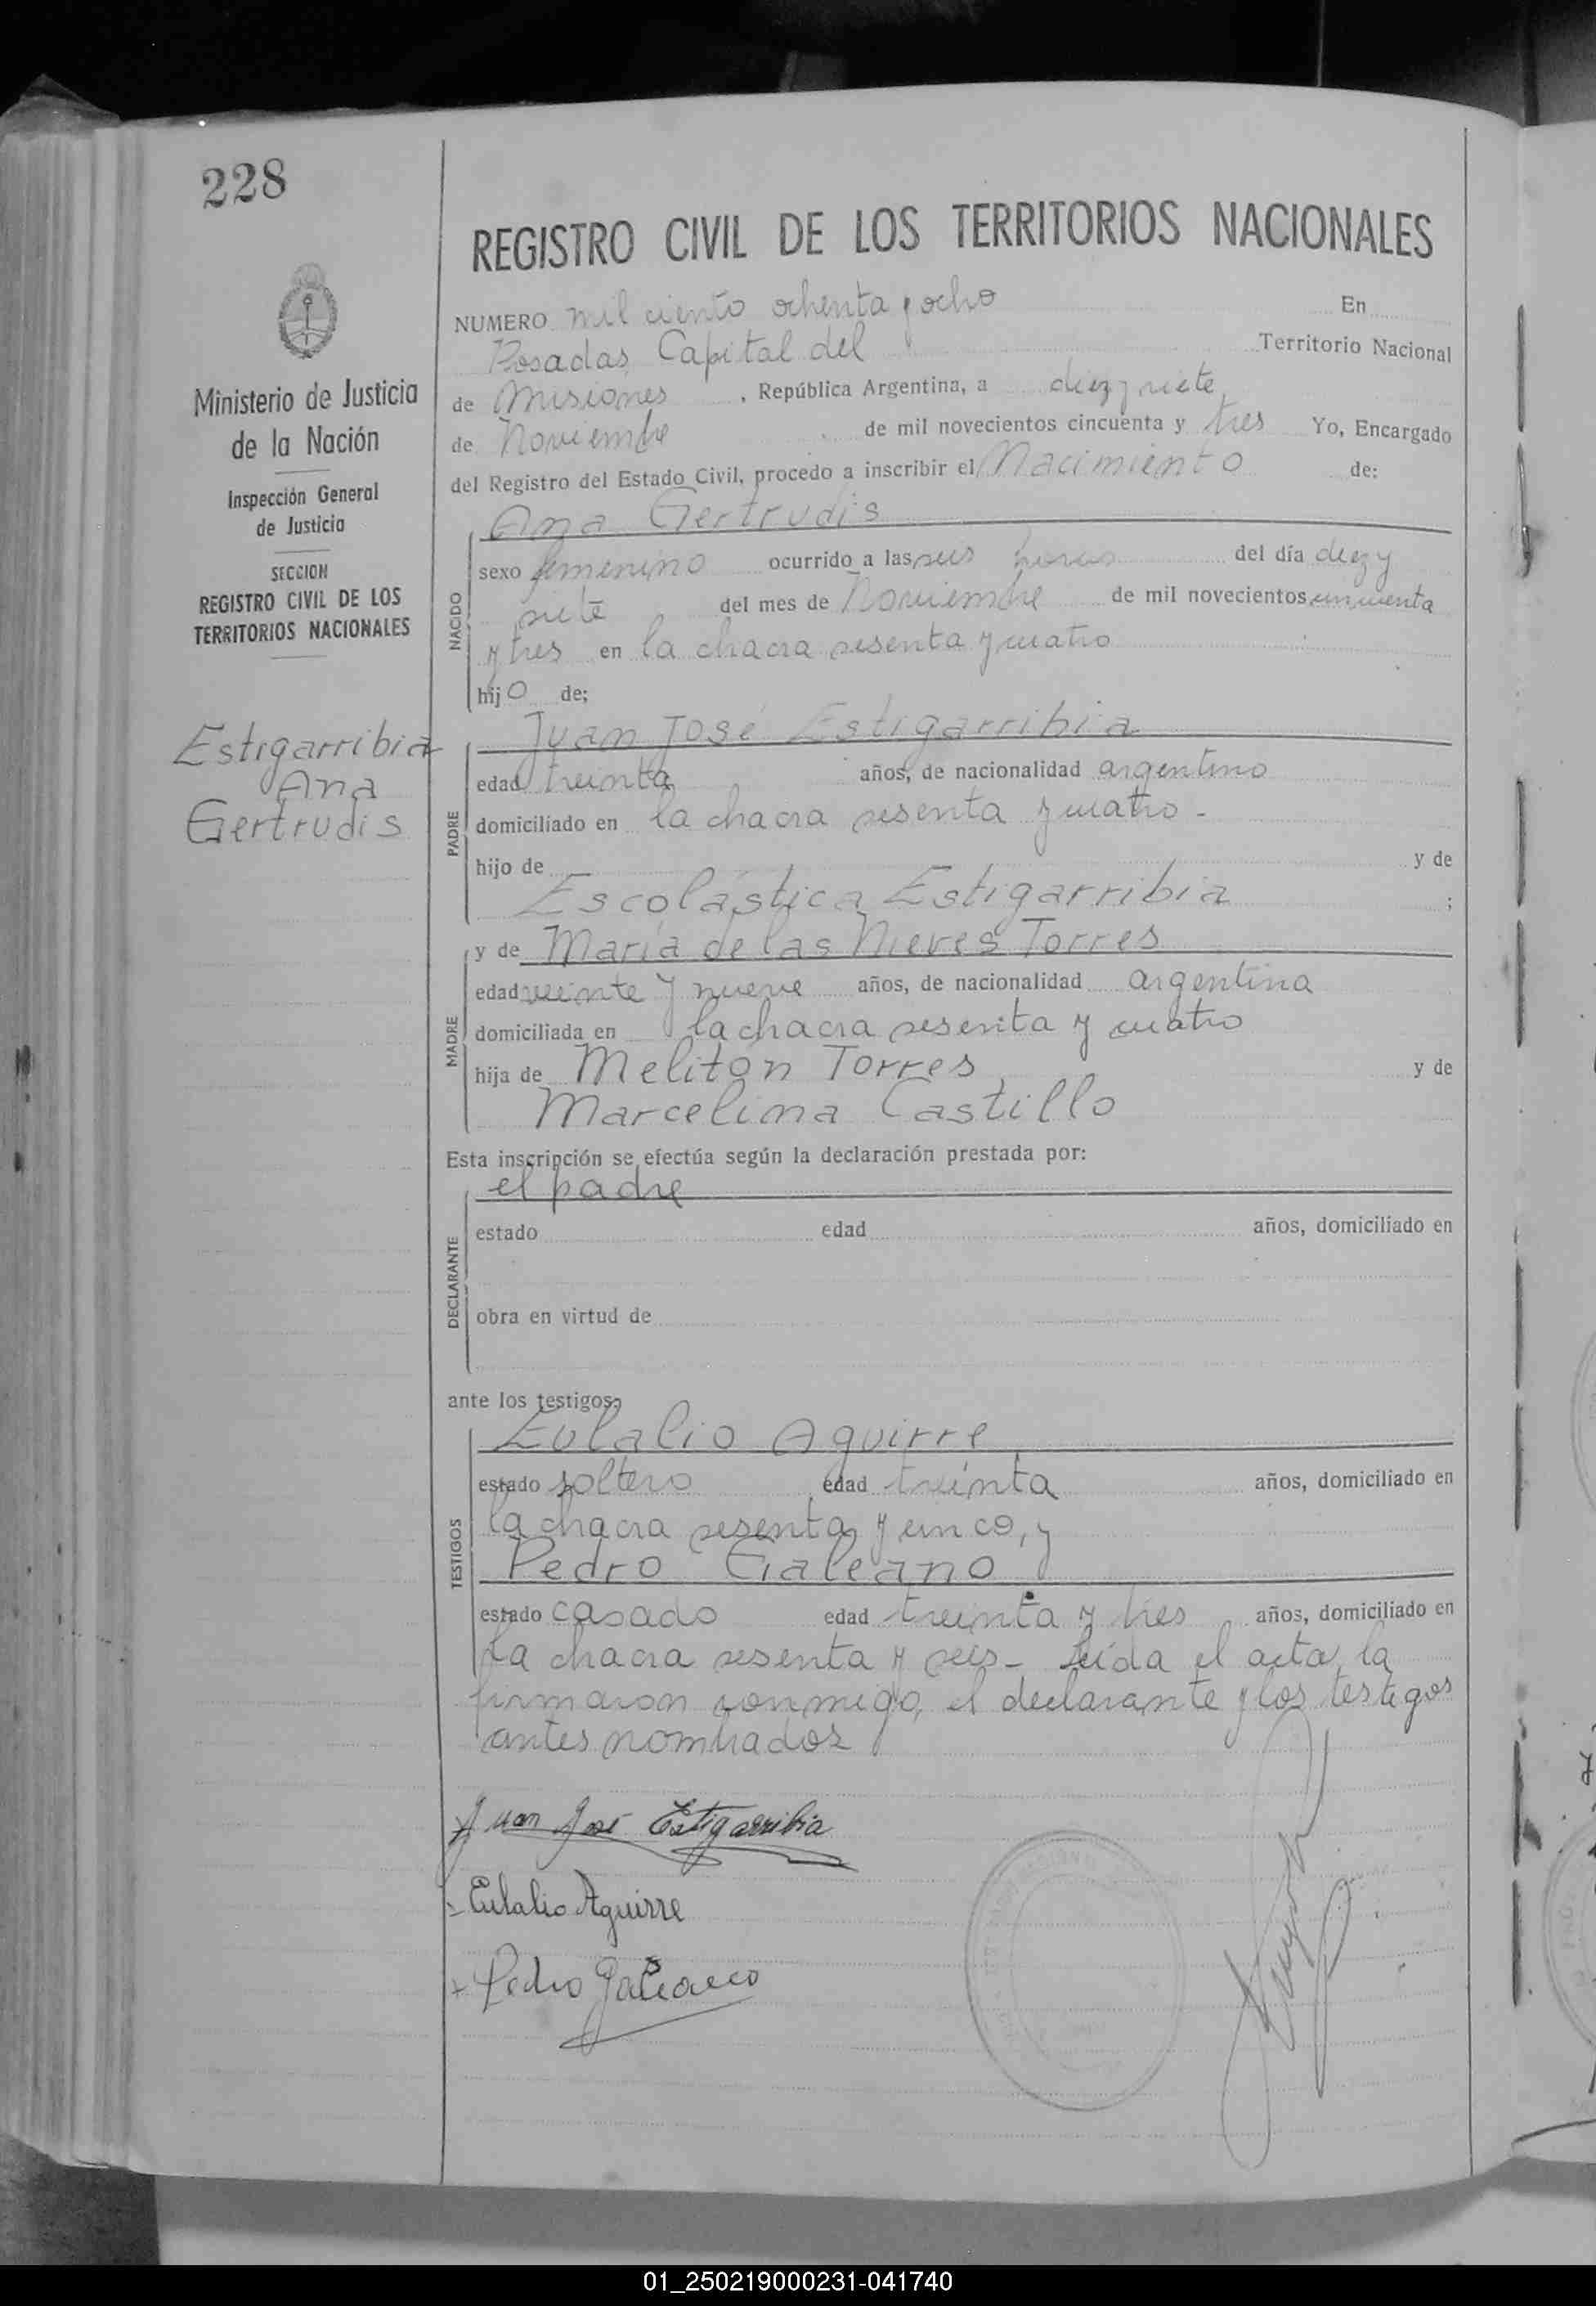 228
REGISTRO CIVIL DE LOS TERRITORIOS NACIONALES
NUMERO mil ciento ochenta y ocho En
Posadas, Capital del Territorio Nacional
de Misiones, República Argentina, a diez y siete
de Noviembre de mil novecientos cincuenta y tres Yo, Encargado
del Registro del Estado Civil, procedo a inscribir el Nacimiento de:
Ana Gertrudis
NACIDO
sexo femenino ocurrido a las seis horas del día diez y
siete del mes de Noviembre de mil novecientos cincuenta
y tres en la chacra sesenta y cuatro
hijo de;
Juan José Estigarribia
PADRE
edad treinta años, de nacionalidad argentino
domiciliado en la chacra sesenta y cuatro -
hijo de y de
Escolástica Estigarribia ;
y de María de las Nieves Torres
MADRE
edad veinte y nueve años, de nacionalidad argentina
domiciliada en la chacra sesenta y cuatro
hija de Melitón Torres y de
Marcelina Castillo
Esta inscripción se efectúa según la declaración prestada por:
el padre
DECLARANTE
estado edad años, domiciliado en
obra en virtud de
ante los testigos:
Eulalio Aguirre
TESTIGOS
estado soltero edad treinta años, domiciliado en
la chacra sesenta y cinco, y
Pedro Galeano
estado casado edad treinta y tres años, domiciliado en
la chacra sesenta y seis - Leída el acta, la
firmaron conmigo, el declarante y los testigos
antes nombrados
Juan José Estigarribia
Eulalio Aguirre
Pedro Galeano
Ministerio de Justicia
de la Nación
Inspección General
de Justicia
SECCION
REGISTRO CIVIL DE LOS
TERRITORIOS NACIONALES
Estigarribia
Ana
Gertrudis
01_250219000231-041740